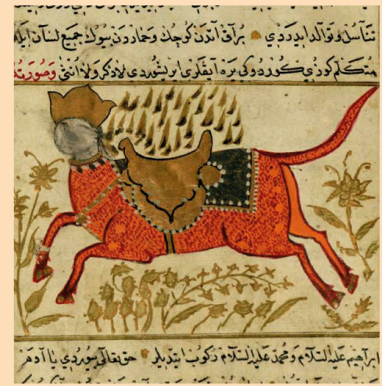 تناسل و توالد ايدردي براق آتدن كوچك و حماردن بيوك جميع لسان ايله
متكلم كوزي كوردوكي يره آيقلري ايريشوردي لا ذكر ولا انثى وصورته
ابراهيم عليه السلام و محمد عليه السلام ركوب ايتديلر حق تعالى بيوردي يا آدم